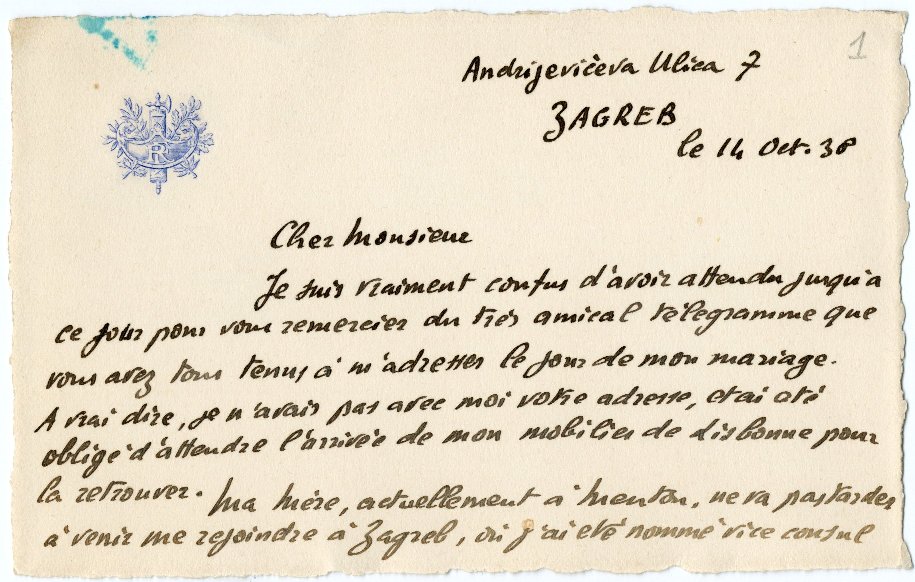 1
Andrijevićeva Ulica 7
ZAGREB
le 14 Oct. 38
R
Cher Monsieur
Je suis vraiment confus d'avoir attendu jusqu'à
ce jour pour vous remercier du très amical télégramme que
vous avez tous tenus à m'adresser le jour de mon mariage.
A vrai dire, je n'avais pas avec moi votre adresse, et ai été
obligé d'attendre l'arrivée de mon mobilier de Lisbonne pour
la retrouver. Ma Mère, actuellement à Menton, ne va pas tarder
à venir me rejoindre à Zagreb, où j'ai été nommé vice consul